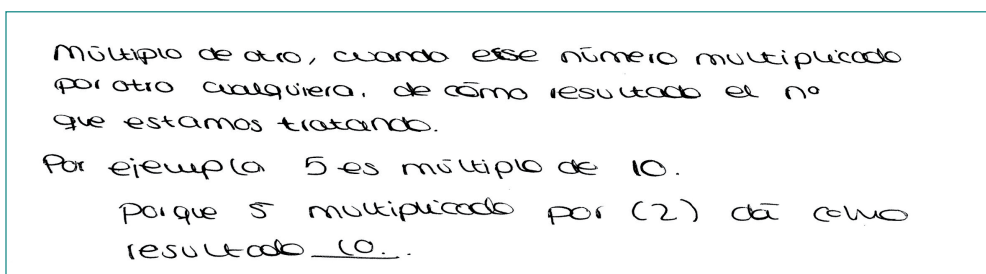 Mūltiplo de otro, cuando esse nūmero multiplicado
por otro cualquiera, de cōmo resultado el nº
que estamos tratando.
Por ejempla 5 es mūltiplo de 10.
porque 5 multiplicado por (2) dā como
resultado 10.